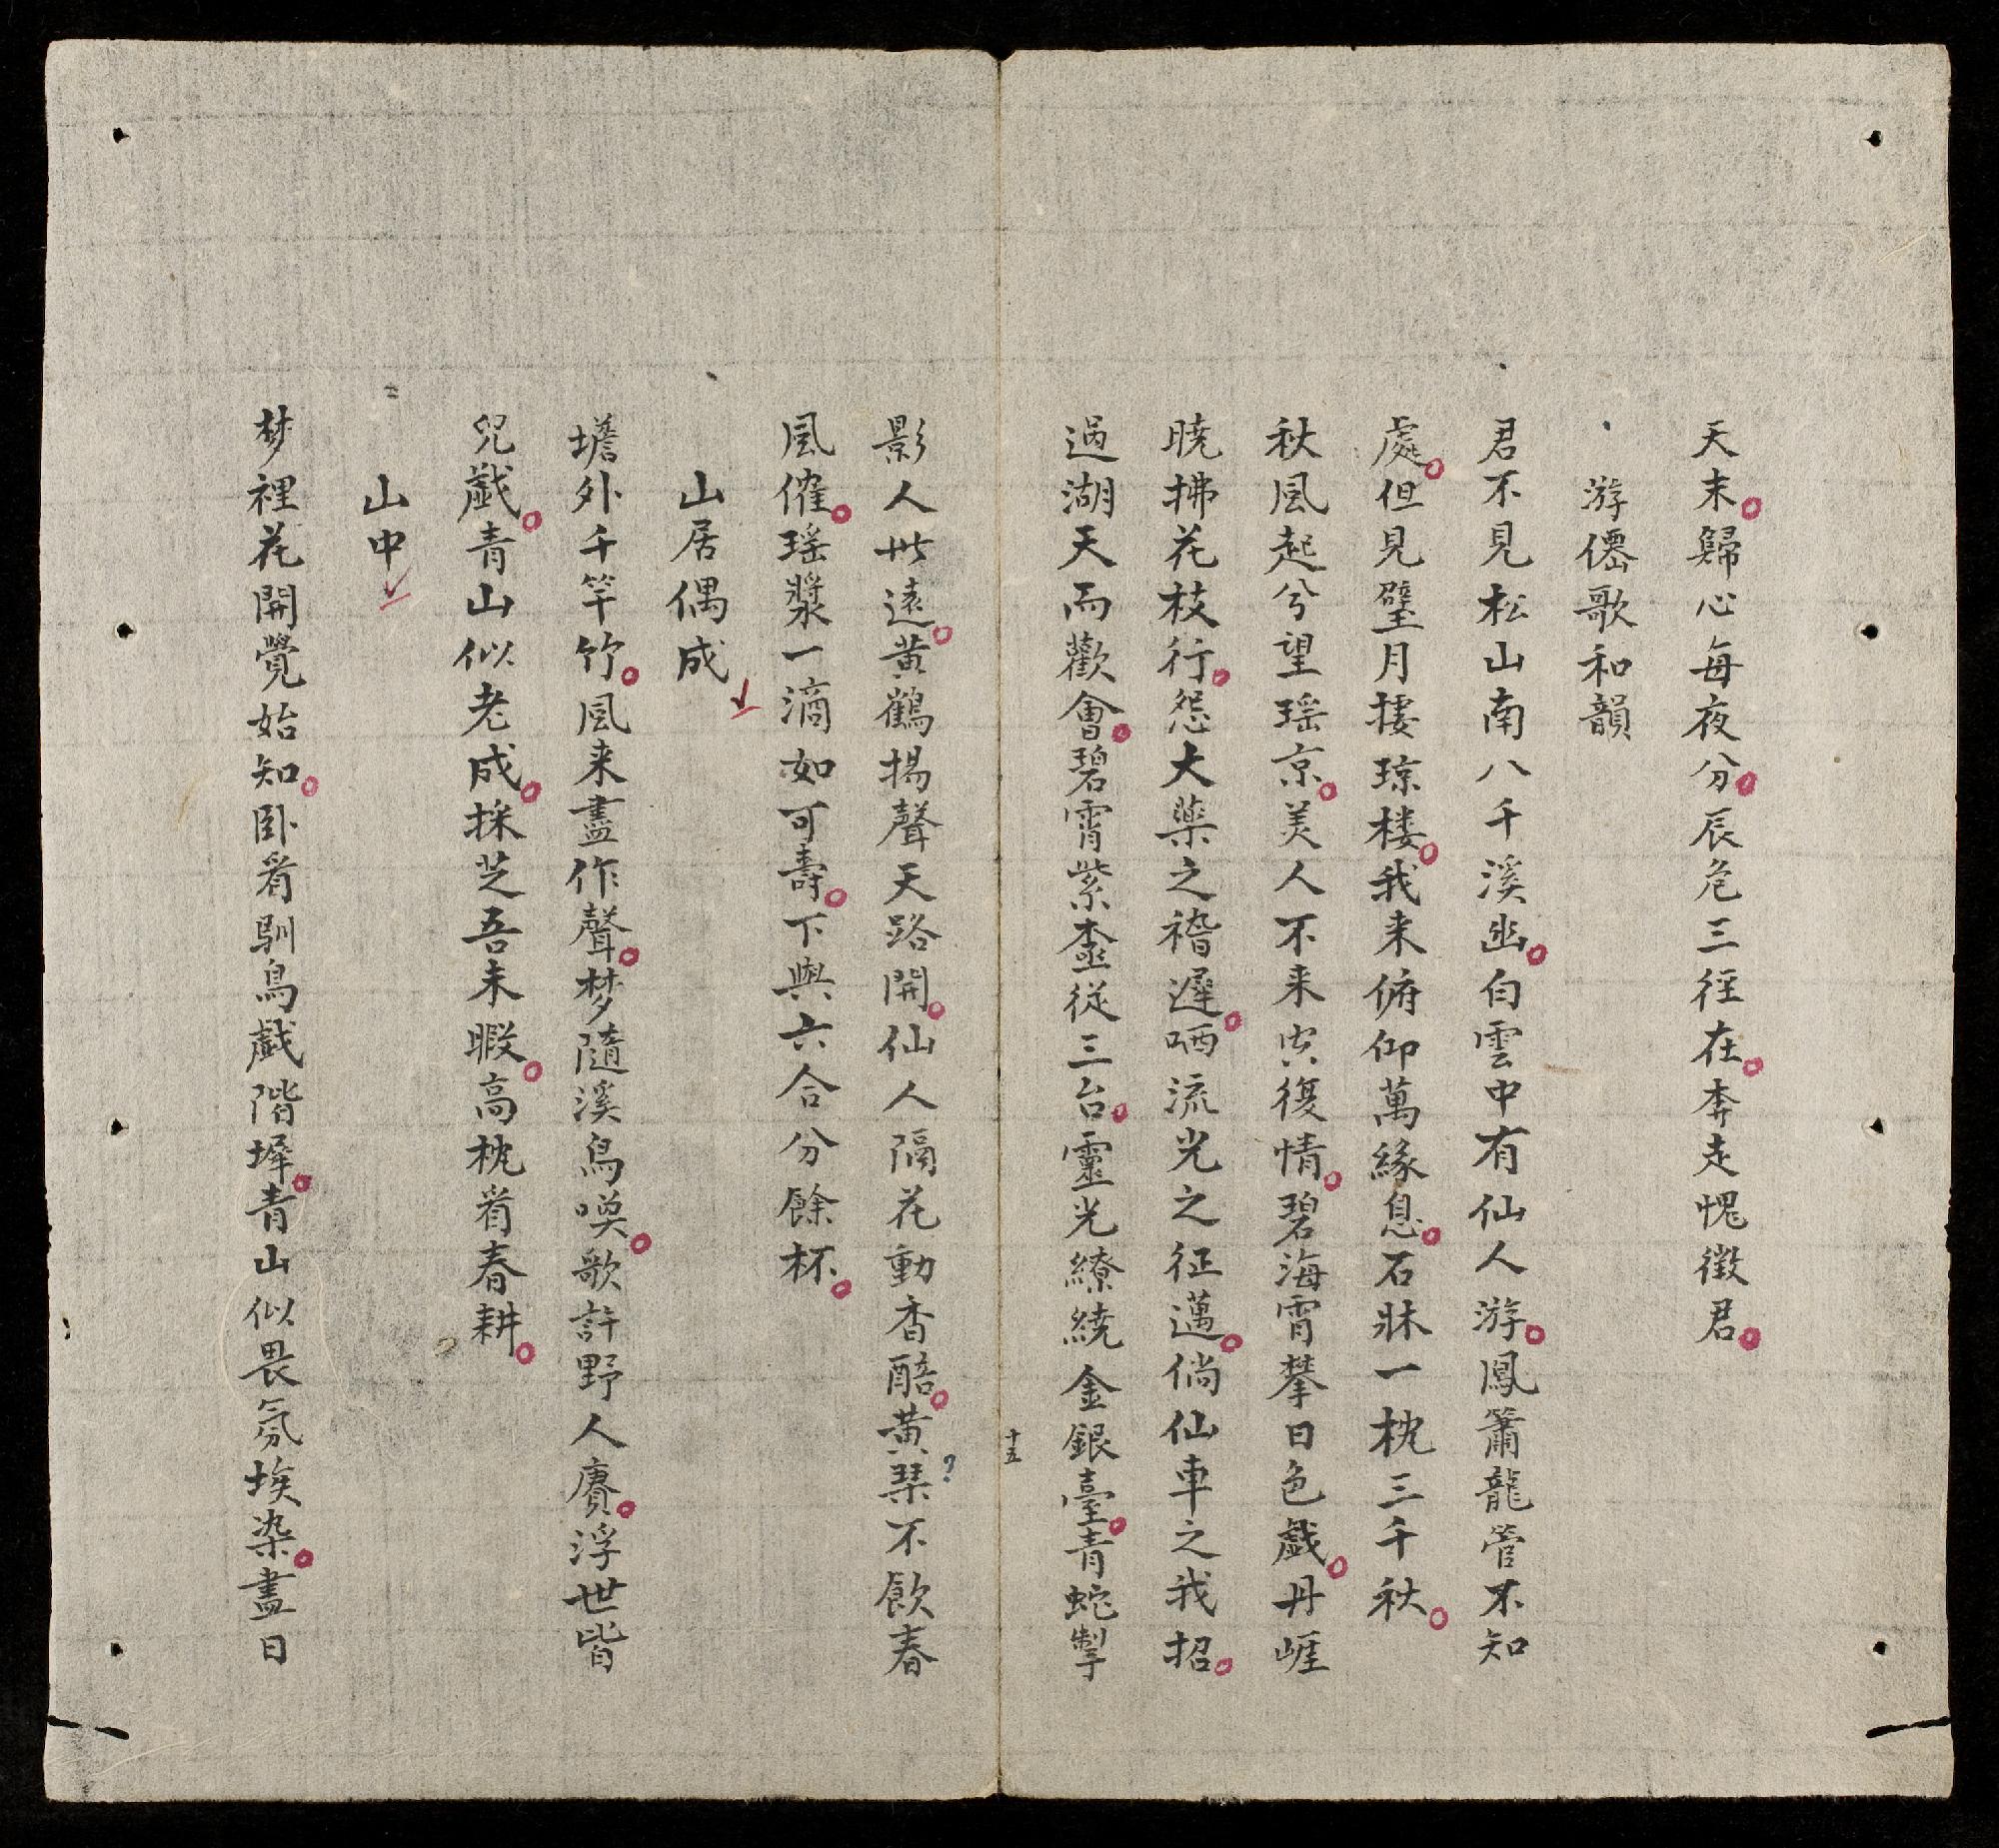 天末歸心每夜分辰危三徑在奔走愧徵君
游僊歌和韻
君不見松山南八千溪幽白雲中有仙人游鳳簫龍管不知
處但見璧月摟琼楼我来俯仰萬緣息石牀一枕三千秋
秋風起兮望瑤京美人不来寅復情碧海霄攀日色戲丹崕
曉拂花枝行怨大藥之稽遲哂流光之征邁倘仙車之我招
過湖天而歡會碧霄紫橐従三台靈光繚繞金銀臺青蛇掣
影人世遠黄鶴揚聲天路開仙人隔花動香醅黄琹不飲春
風催瑤漿一滴如可壽下與六合分餘杯
山居偶成
墻外千竿竹風来盡作聲梦隨溪鳥喚歌許野人賡浮世皆
兒戲青山似老成採芝吾未暇高枕看春耕
山中
梦裡花開覺始知卧看馴鳥戲階墀青山似畏氛埃染盡日
十五
?